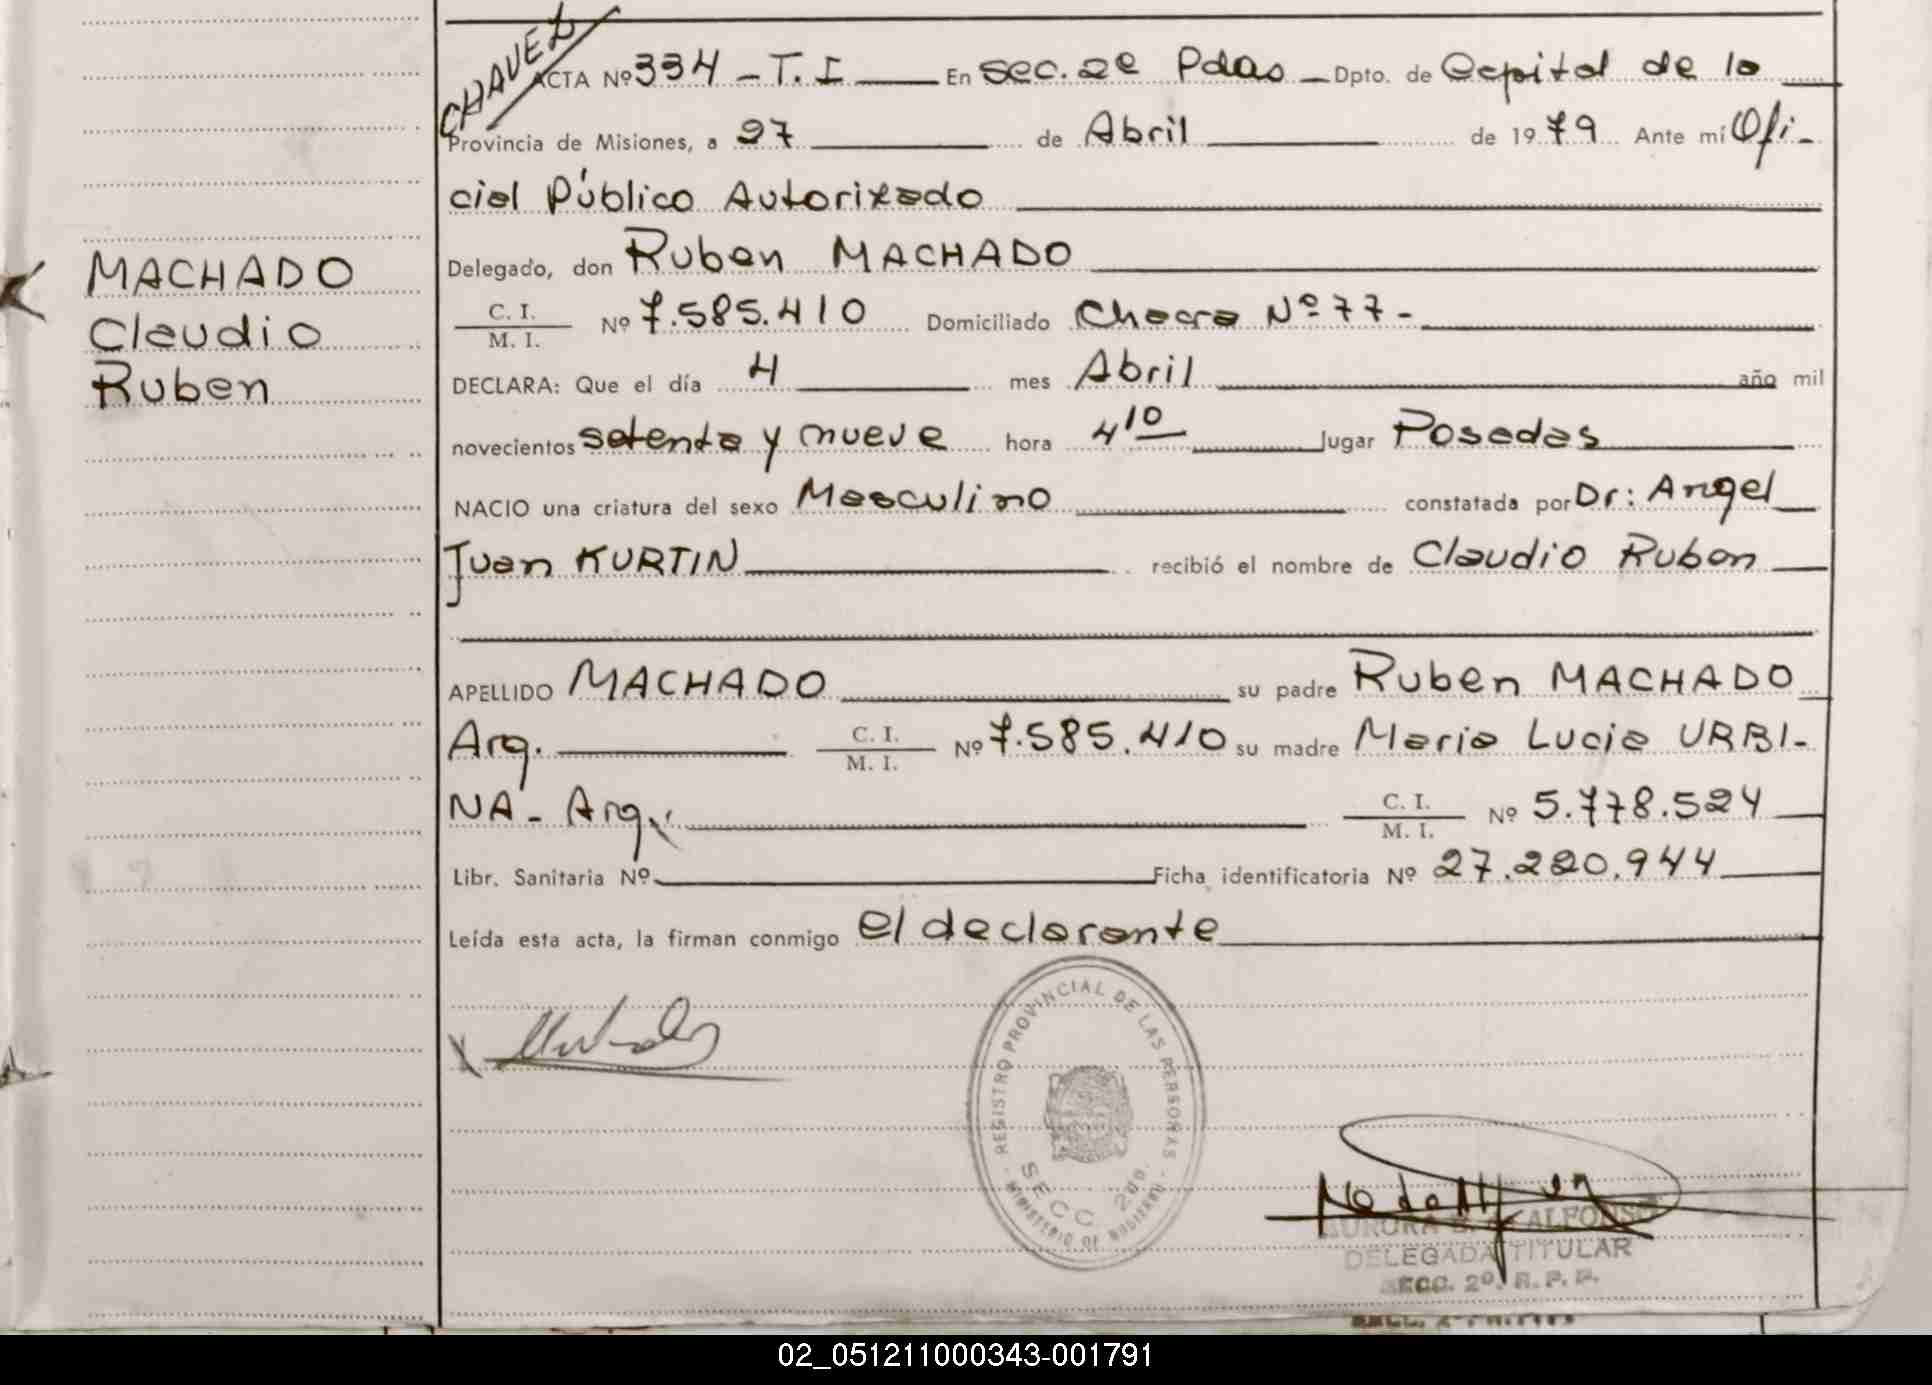 CHAVEZ
ACTA Nº 334 - T. I En Sec. 2ª Pdas Dpto. de Capital de la
Provincia de Misiones, a 27 de Abril de 1979 Ante mí Ofi-
cial Público Autorizado
Delegado, don Ruben MACHADO
C. I.
M. I. Nº 7.585.410 Domiciliado Chacra Nº 77-
DECLARA: Que el día 4 mes Abril año mil
novecientos setenta y nueve hora 4 10 lugar Posadas
NACIO una criatura del sexo Masculino constatada por Dr: Angel
Juan KURTIN recibió el nombre de Claudio Ruben
APELLIDO MACHADO su padre Ruben MACHADO
Arg. C. I.
M. I. Nº 7.585.410 su madre Maria Lucia URBI-
NA - Arg. C. I.
M. I. Nº 5.778.524
Libr. Sanitaria Nº Ficha identificatoria Nº 27.220.944
Leída esta acta, la firman conmigo el declarante
MACHADO
Claudio
Ruben
REGISTRO PROVINCIAL DE LAS PERSONAS
SECC 2da.
MINISTERIO DE GOBIERNO
AURORA ALFONSO
DELEGADA TITULAR
SECC. 2º. R. P. P.
02_051211000343-001791